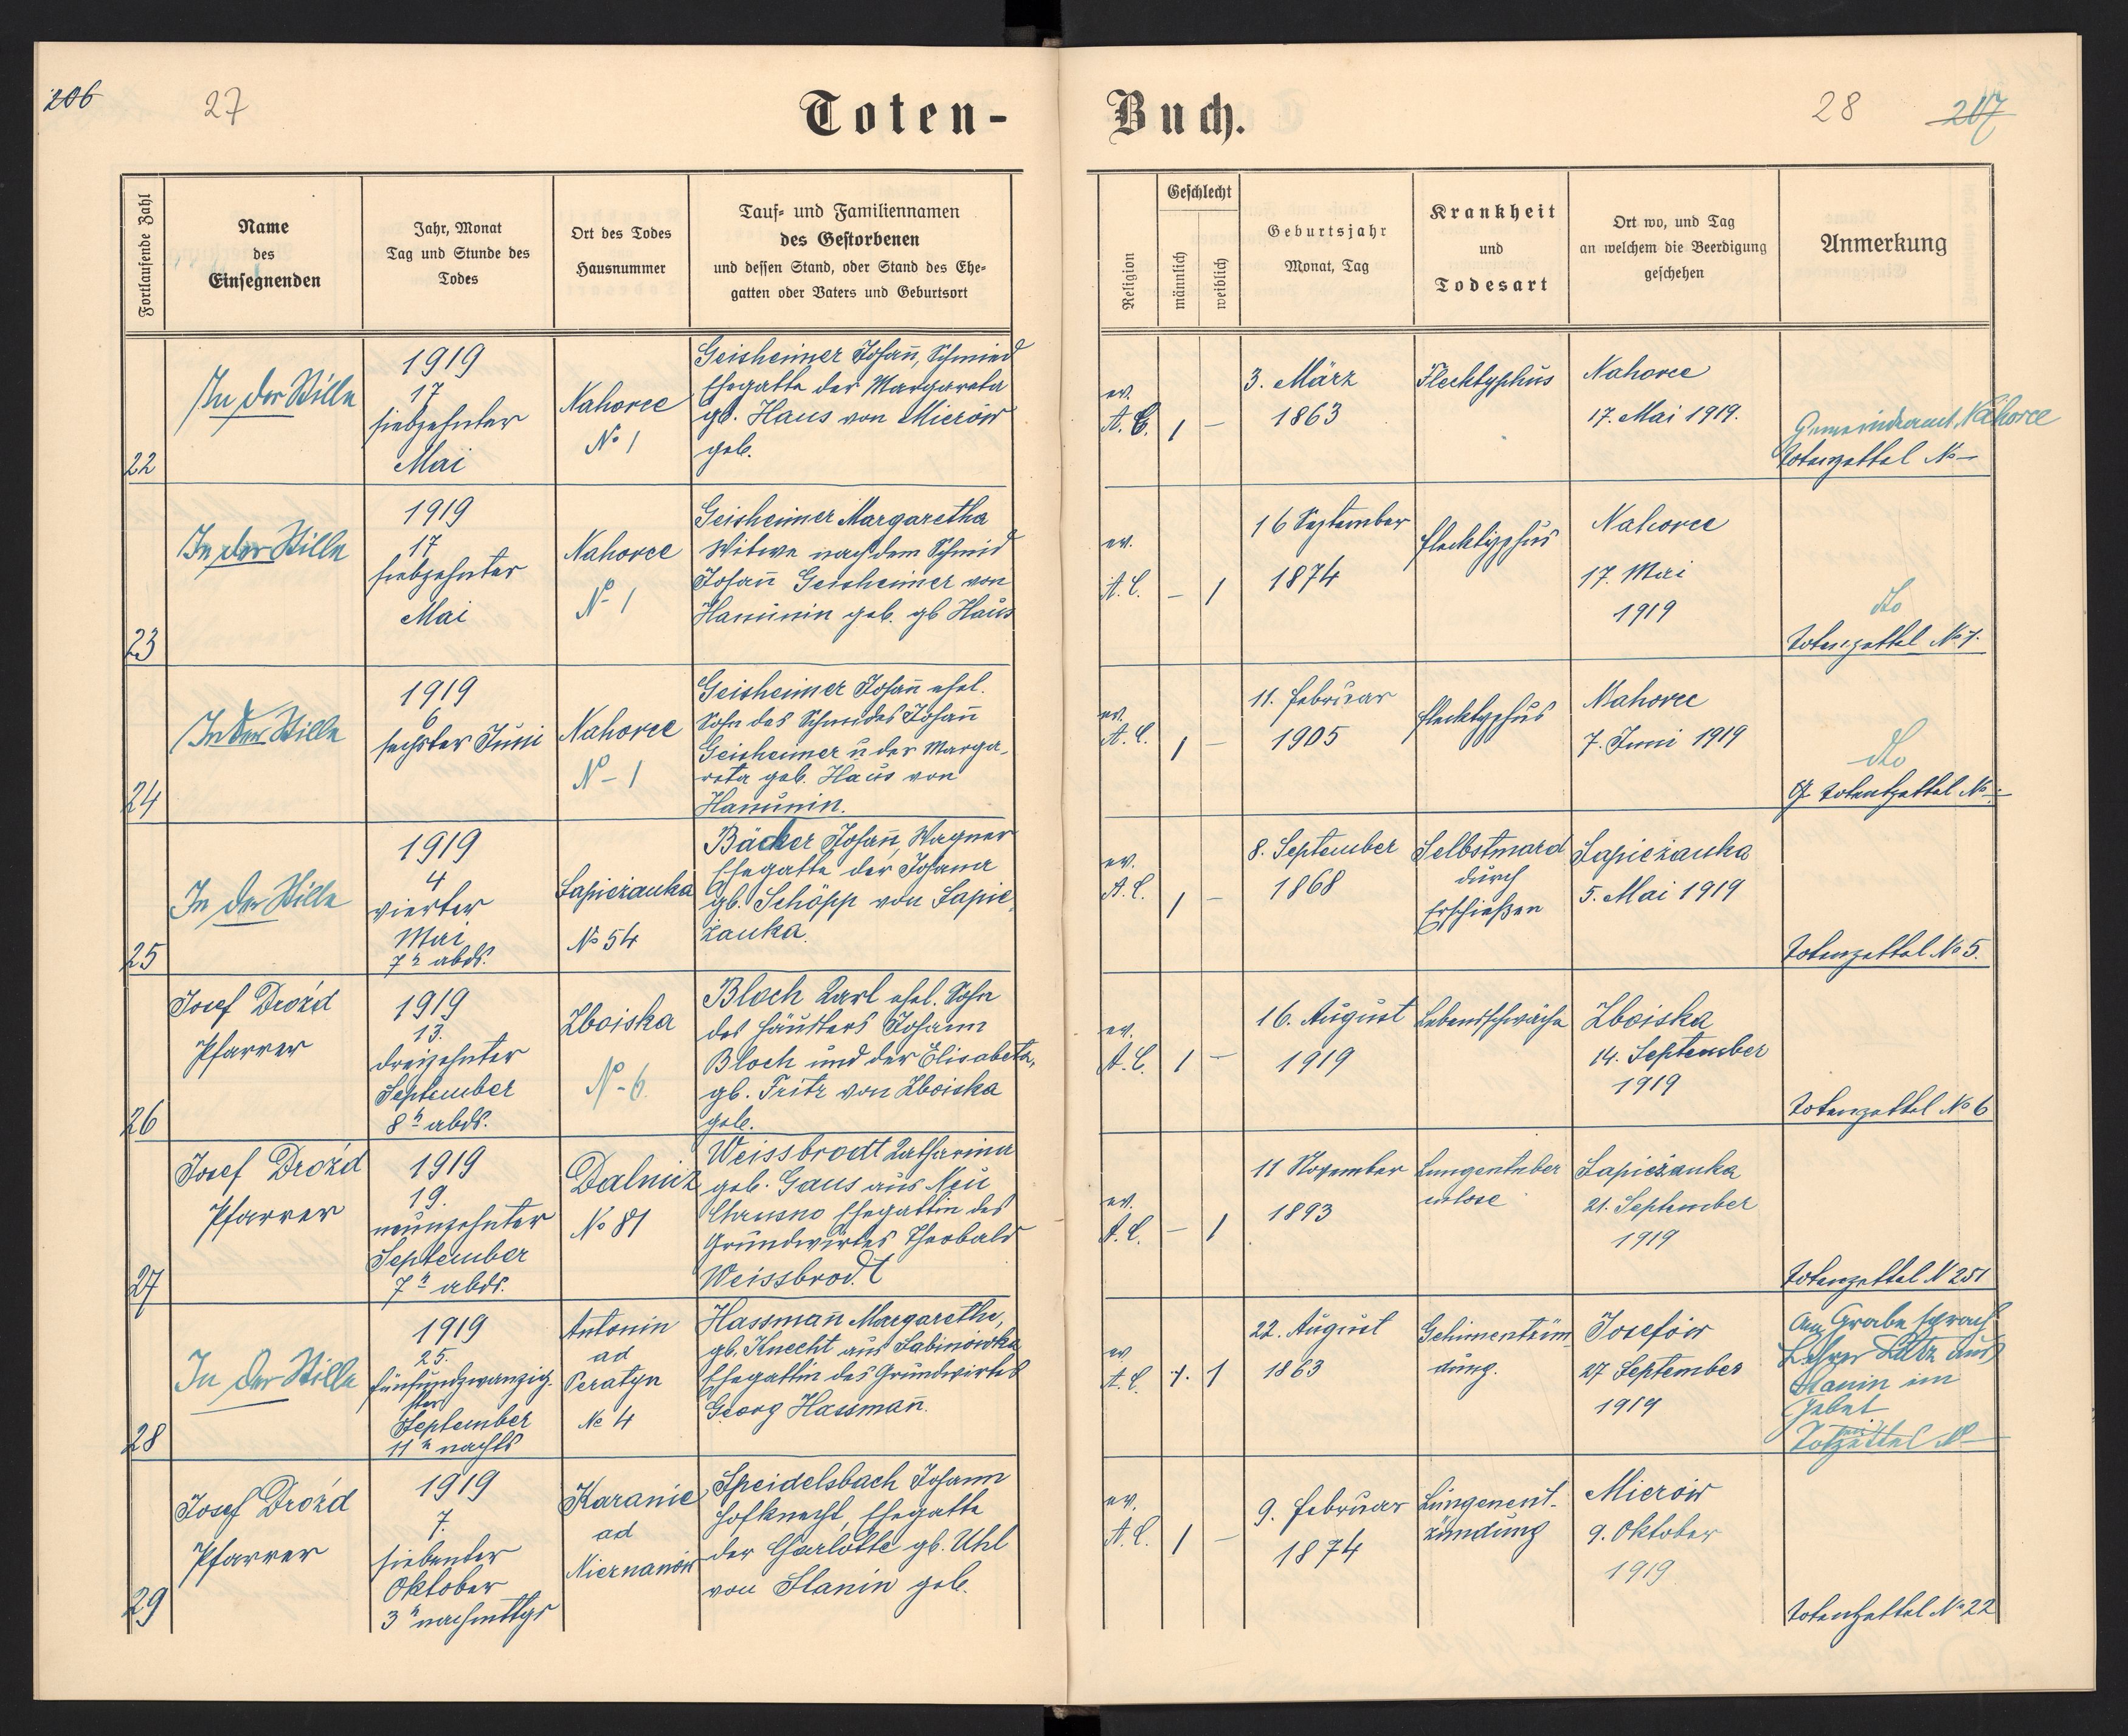 206
27
Toten-
Buch.
28
207
Fortlaufende Zahl
Name
des
Einsegnenden
Jahr, Monat
Tag und Stunde des
Todes
Ort des Todes
Hausnummer
Tauf- und Familiennamen
des Gestorbenen
und dessen Stand, oder Stand des Ehe-
gatten oder Vaters und Geburtsort
Religion
Geschlecht
männlich
weiblich
Geburtsjahr
Monat, Tag
Krankheit
und
Todesart
Ort wo, und Tag
an welchem die Beerdigung
geschehen
Anmerkung
22
In der Stille
1919
17
siebzehnter
Mai
Nahorce
No 1
Geisheimer Johann, Schmied
Ehegatte der Margareta
gb. Haus von Mierów
geb.
ev.
A. C.
1
–
3. März
1863
Flecktyphus
Nahorce
17. Mai 1919.
Gemeindeamt Nahorce
Totenzettel No –
23
In der Stille
1919
17
siebzehnter
Mai
Nahorce
No 1
Geisheimer Margaretha
Witwe nach dem Schmid
Johann Geisheimer von
Hanunin geb. gb Haus
ev.
A. C.
–
1
16 September
1874
Flecktyphus
Nahorce
17. Mai
1919
dto
Totenzettel No 7.
24
In der Stille
1919
6
sechster Juni
Nahorce
No – 1
Geisheimer Johann ehel.
Sohn des Schmides Johann
Geisheimer u der Marga-
reta geb. Haus von
Hanunin.
ev.
A. C.
1
–
11. Februar
1905
Flecktyphus
Nahorce
7. Juni 1919
dto
Totentzettel No –
25
In der Stille
1919
4
vierter
Mai
7 h abds.
Sapieżanka
No 54
Bäcker Johann, Wagner
Ehegatte der Johana
gb. Schöpp von Sapie-
żanka.
ev.
A. C.
1
–
8. September
1868
Selbstmard
durch
Erschießen
Sapieżanka
5. Mai 1919
Totenzettel No 5.
26
Josef Drożd
Pfarrer
1919
13.
dreizehnter
September
8 h abds.
Zboiska
No – 6.
Bloch Karl ehel. Sohn
des Häuslers Johann
Bloch und der Elisabeta,
gb. Fritz von Zboiska
geb.
ev.
A. C.
1
–
16. August
1919
Lebensschwäche
Zboiska
14. September
1919
Totenzettel No 6
27
Josef Drożd
Pfarrer
1919
19.
neunzehnter
September
7 h abds.
Dalnicz
No 81
Weissbrodt Katharina
geb. Gaus aus Neu
Chrusno Ehegattin des
Grundwirtes Theobald
Weissbrodt
ev.
A. C.
–
1
11 November
1893
Lungentuber
culose
Sapieżanka
21. September
1919
Totenzettel N 251
28
In der Stille
1919
25.
fünfundzwanzig-
ster
September
11 h nachts
Antonin
ad
Peratyn
No 4
Hassmann Margarethe,
gb. Knecht aus Sabinówka
Ehegattin des Grundwirtes
Georg Hassmann.
ev
A. C.
1
22. August
1863
Gehirnentzün-
dung.
Josefów
27 September
1919
Am Grabe sprach
Lehrer Lutz aus
Stanin im
Gebet
Totzettel N –
29
Josef Drożd
Pfarrer
1919
7.
siebenter
Oktober
3 h nachmttgs
Karanie
ad
Niernanów
Speidelsbach Johann
Hofknecht, Ehegatte
der Charlotte gb. Uhl
von Stanin geb.
ev.
A. C.
1
–
9. Februar
1874
Lungenent-
zündung
Mierów
9. Oktober
1919
Totenzettel No 22